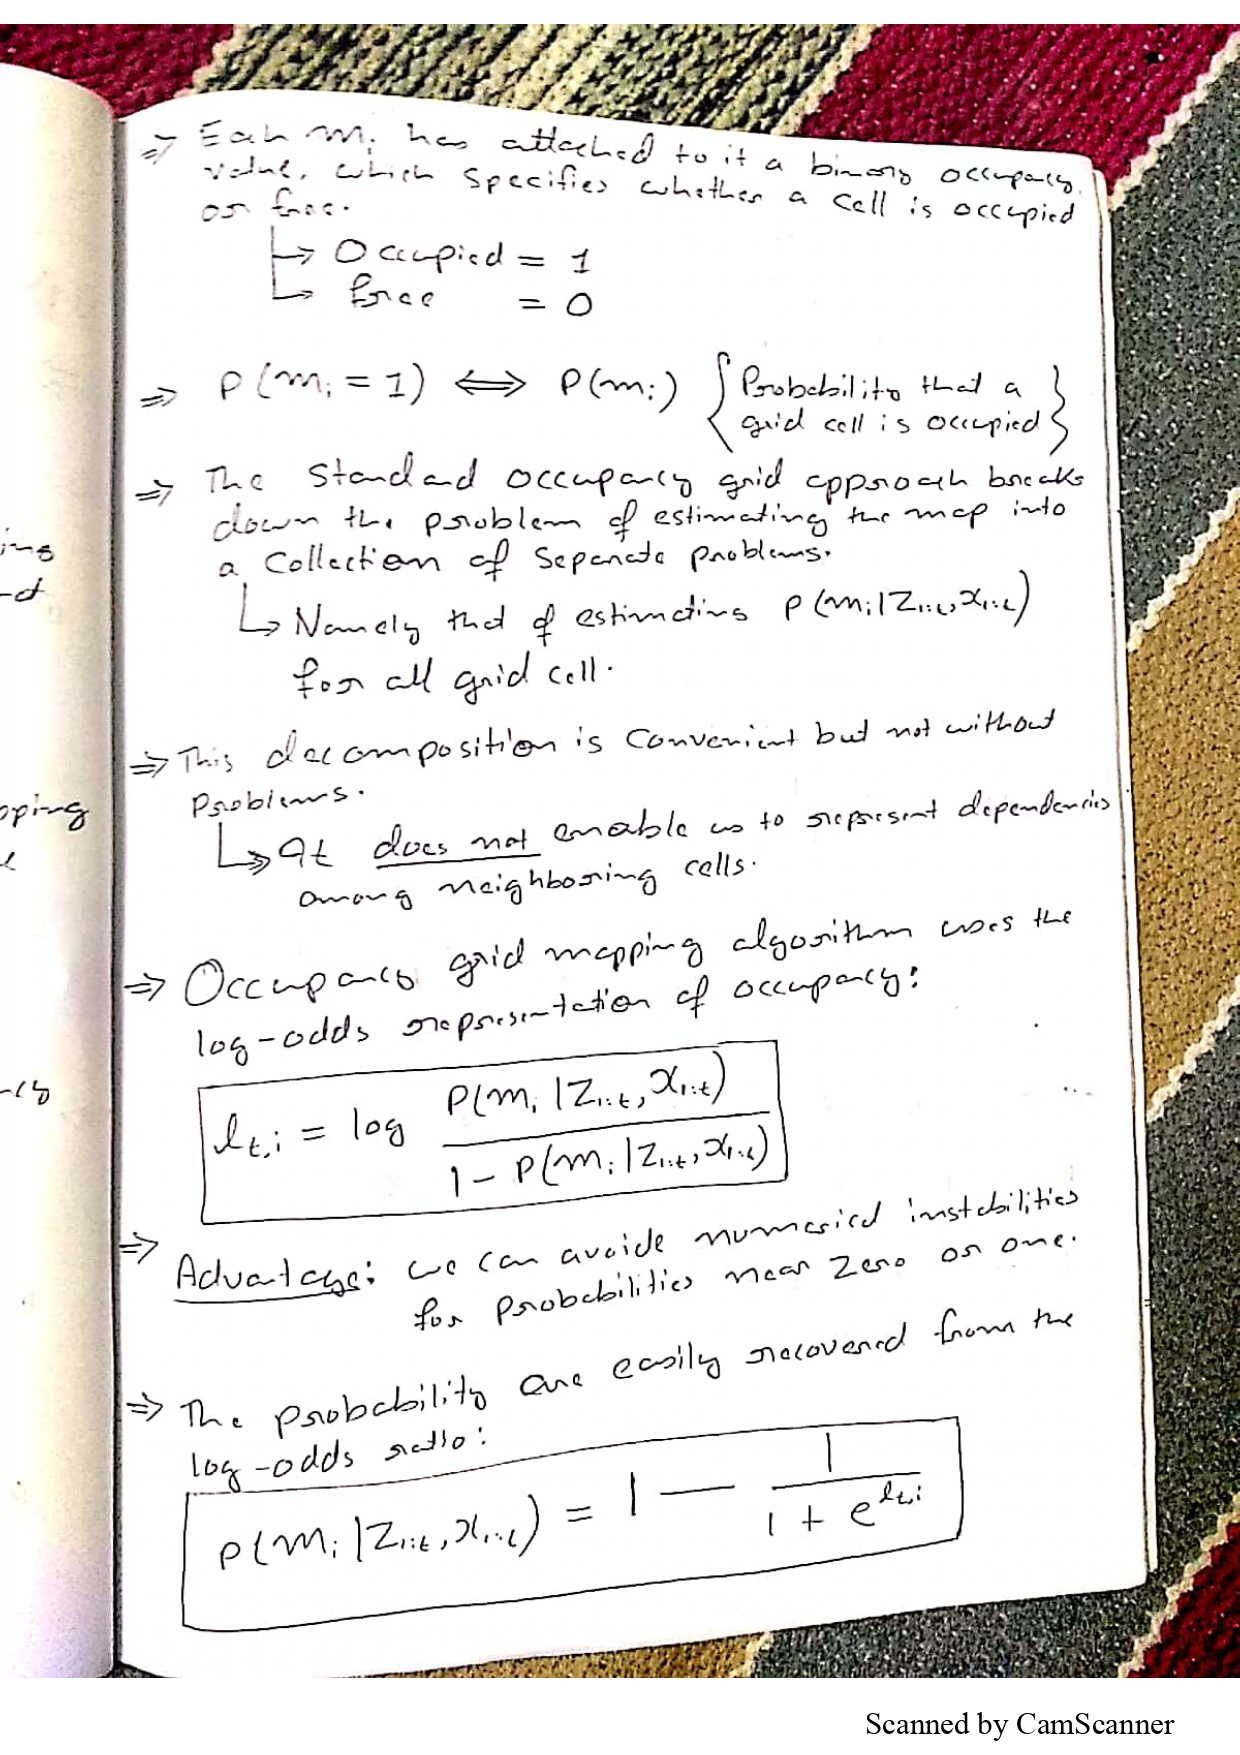 ⇒ Each mᵢ has attached to it a binary occupancy
value, which specifies whether a cell is occupied
or free.
↳ Occupied = 1
↳ free = 0
⇒ P(mᵢ = 1) ⟺ P(mᵢ) { Probability that a
grid cell is occupied }
⇒ The Standard occupancy grid approach breaks
down the problem of estimating the map into
a Collection of Separate problems.
↳ Namely that of estimating P(mᵢ|Z₁:t, x₁:t)
for all grid cell.
⇒ This decomposition is Convenient but not without
Problems.
↳ It does not enable us to represent dependencies
among neighboring cells.
⇒ Occupancy grid mapping algorithm uses the
log-odds representation of occupancy:
lt,i = log P(mᵢ |Z₁:t, x₁:t)
1 - P(mᵢ |Z₁:t, x₁:t)
⇒ Advantage: we can avoide numerical instabilities
for Probabilities near Zero or one.
⇒ The probability are easily recovered from the
log-odds ratio:
P(mᵢ |Z₁:t, x₁:t) = 1 — 1
1 + e^lt,i
ing
pping
Scanned by CamScanner